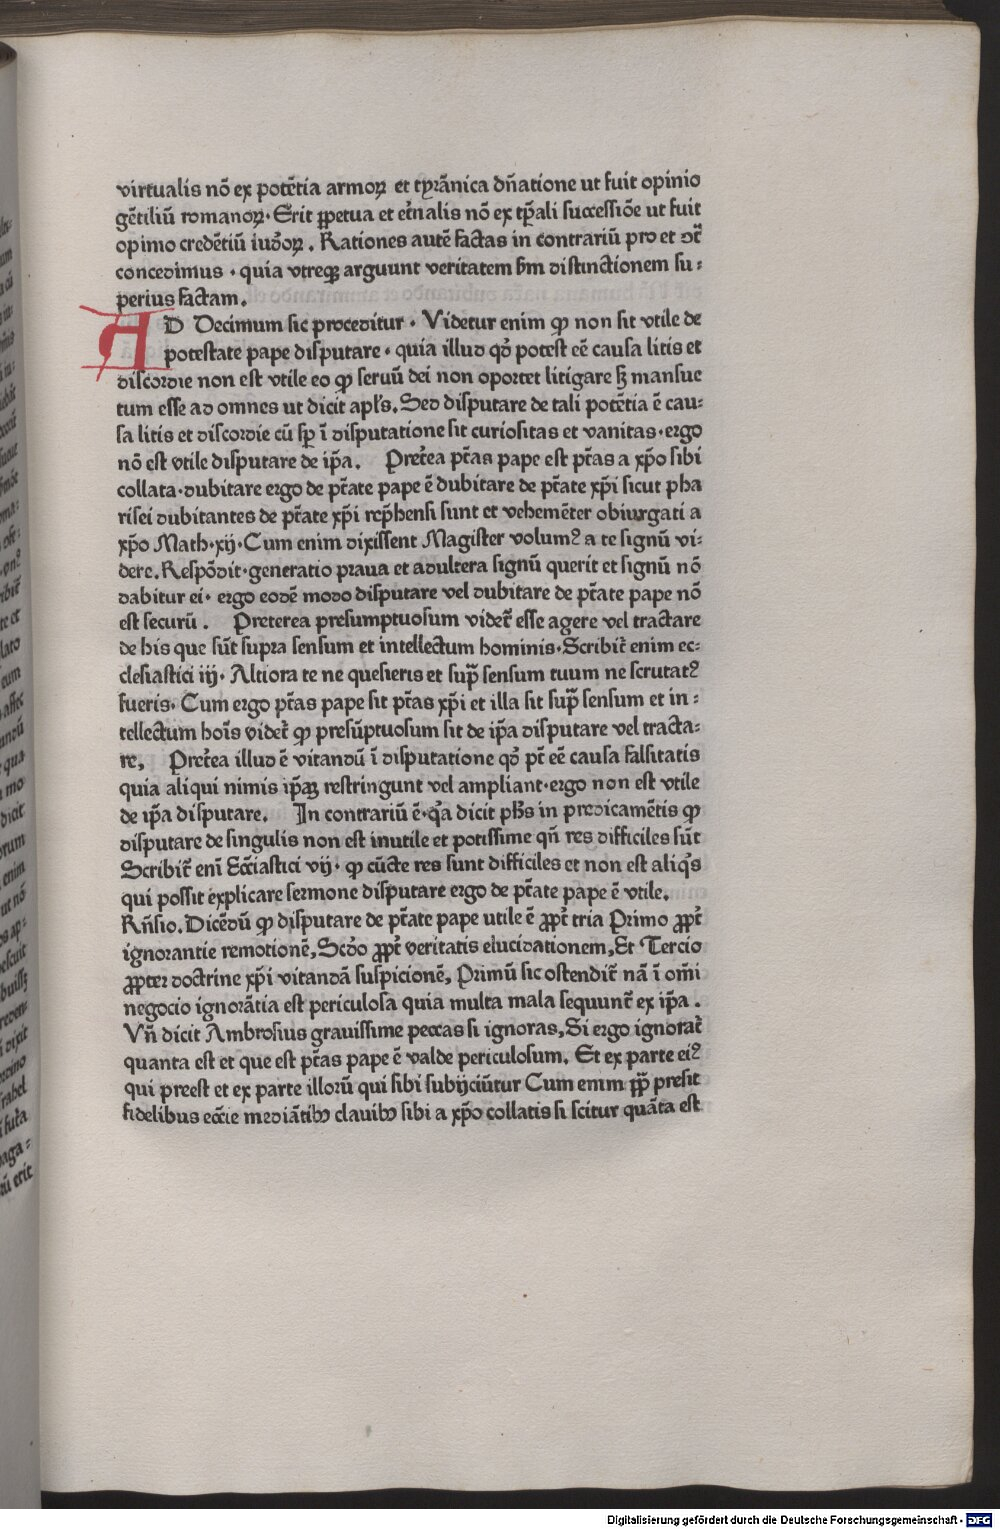 virtualis nō ex potētia armoꝝ et tyrānica dn̄atione ut fuit opinio
gētiliū romanoꝝ. Erit ꝑpetua et et̄nalis nō ex tꝑali successiōe ut fuit
opinio credētiū iudōꝝ. Rationes autē factas in contrariū pro et ↄt̄
concedimus . quia vtreqꝫ arguunt veritatem ẜm distinctionem su⸗
perius factam.
AD Decimum sic proceditur . Videtur enim ꝙ non sit vtile de
potestate pape disputare . quia illud qd̄ potest eē causa litis et
discordie non est vtile eo ꝙ seruū dei non oportet litigare sꝫ mansue
tum esse ad omnes ut dicit apl's. Sed disputare de tali potētia ē cau⸗
sa litis et discordie cū sꝑ ī disputatione sit curiositas et vanitas. ergo
nō est vtile disputare de ip̄a. Pret̄ea pt̄as pape est pt̄as a xp̄o sibi
collata. dubitare ergo de pt̄ate pape ē dubitare de pt̄ate xp̄i sicut pha
risei dubitantes de pt̄ate xp̄i rep̄hensi sunt et vehemēter obiurgati a
xp̄o Math. xij. Cum enim dixissent Magister volumꝰ a te signū vi⸗
dere. Respōdit. generatio praua et adultera signū querit et signū nō
dabitur ei. ergo eodē modo disputare vel dubitare de pt̄ate pape nō
est securū. Preterea presumptuosum videt̄ esse agere vel tractare
de his que sūt supra sensum et intellectum hominis. Scribit̄ enim ec⸗
clesiastici iij. Altiora te ne quesieris et sup̄ sensum tuum ne scrutatꝰ
fueris. Cum ergo pt̄as pape sit pt̄as xp̄i et illa sit sup̄ sensum et in⸗
tellectum hoīs videt̄ ꝙ presūptuosum sit de ip̄a disputare vel tracta⸗
re, Pret̄ea illud ē vitandū ī disputatione qd̄ pt̄ eē causa falsitatis
quia aliqui nimis ip̄aꝫ restringunt vel ampliant. ergo non est vtile
de ip̄a disputare. In contrariū ē. qa dicit ph̄s in predicamētis ꝙ
disputare de singulis non est inutile et potissime qn̄ res difficiles sūt
Scribit̄ enī Ecc̄iastici vij. ꝙ cūcte res sunt difficiles et non est aliqs
qui possit explicare sermone disputare ergo de pt̄ate pape ē vtile.
Rn̄sio. Dicēdū ꝙ disputare de pt̄ate pape utile ē ꝓpt̄ tria Primo ꝓpt̄
ignorantie remotionē, Scd̄o ꝓpt̄ veritatis elucidationem, Et Tercio
ꝓpter doctrine xp̄i vitandā suspicionē, Primū sic ostendit̄ nā ī om̄i
negocio ignorātia est periculosa quia multa mala sequunt̄ ex ip̄a.
Vn̄ dicit Ambrosius grauissime peccas si ignoras, Si ergo ignorat̄
quanta est et que est pt̄as pape ē valde periculosum. Et ex parte eiꝰ
qui preest et ex parte illorū qui sibi subijciūtur Cum enim pp̄ presit
fidelibus ecc̄ie mediātibꝫ clauibꝫ sibi a xp̄o collatis si scitur quāta est
Digitalisierung gefördert durch die Deutsche Forschungsgemeinschaft - DFG